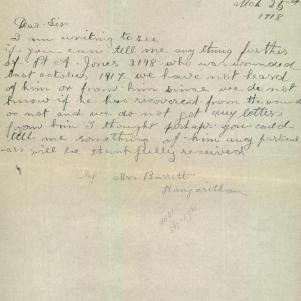 Mch 26th
1918
Dear Sir
I am writing to see
if you can tell me any thing further
of Pt A. Jones 3198 who was wounded
last october 1917 we have not heard
of him or from him since we do not
know if he has recovered from the wound
or not and we do not get any letters
from him I thought perhaps you could
tell me something of him any particul
-ars will be thankfully received
Mrs Barrett